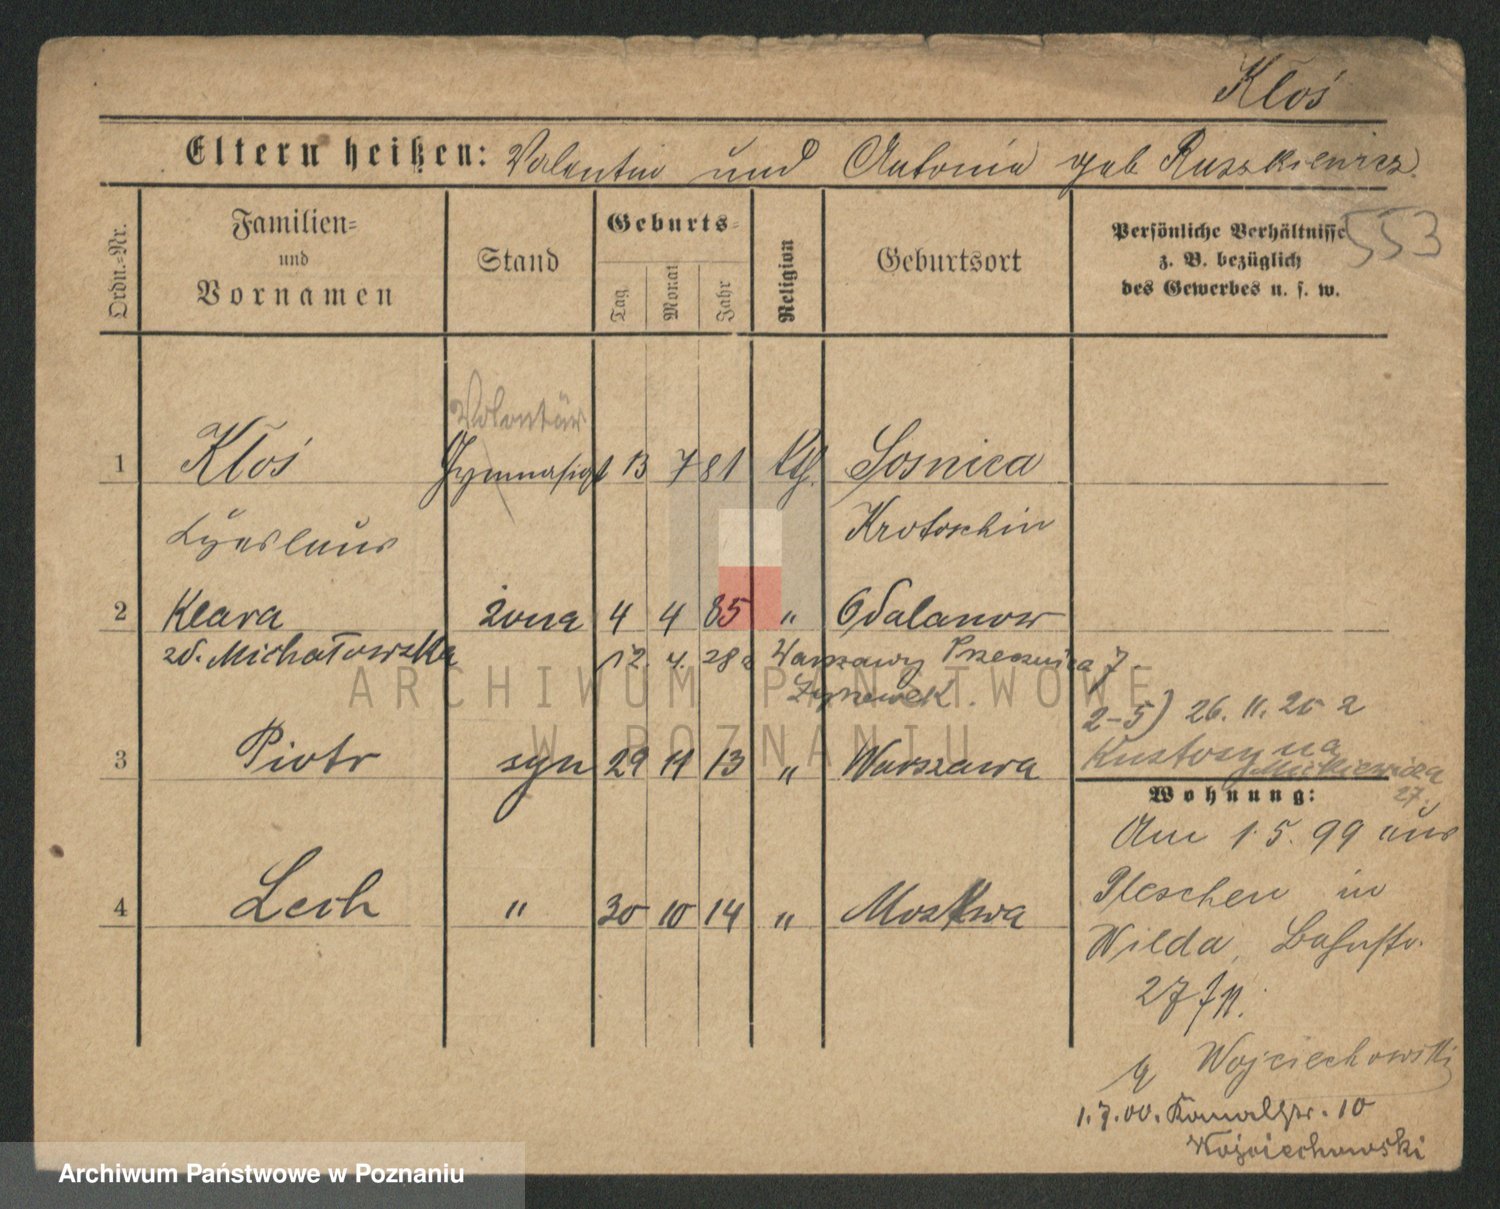 Kłoś
Eltern heißen: Valentin und Antonia geb. Ruszkiewicz.
Ordn.-Nr.
Familien- und Vornamen
Stand
Geburts-
Tag
Monat
Jahr
Religion
Geburtsort
Persönliche Verhältnisse
z. B. bezüglich
des Gewerbes u. s. w.
553
Volontär
1 Kłoś Gymnasiast 13 7 81 Kth. Sośnica
Krotoschin
2 Klara żona 4 4 85 " Odalanow
zd. Michałowska 12. 4. 28 z Warszawy 7
2-5) 26. 11. 25 z
3 Piotr syn 29 11 13 " Warszawa
Mickiewicza
27.
Wohnung:
Am 1. 5. 99 aus
Pleschen in
4 Lech " 30 10 14 " Moskwa
Wilda, Bahnstr.
27 
b/ Wojciechowski
1. 7. 00. 10
Wojciechowski
ARCHIWUM PAŃSTWOWE
W POZNANIU
Archiwum Państwowe w Poznaniu